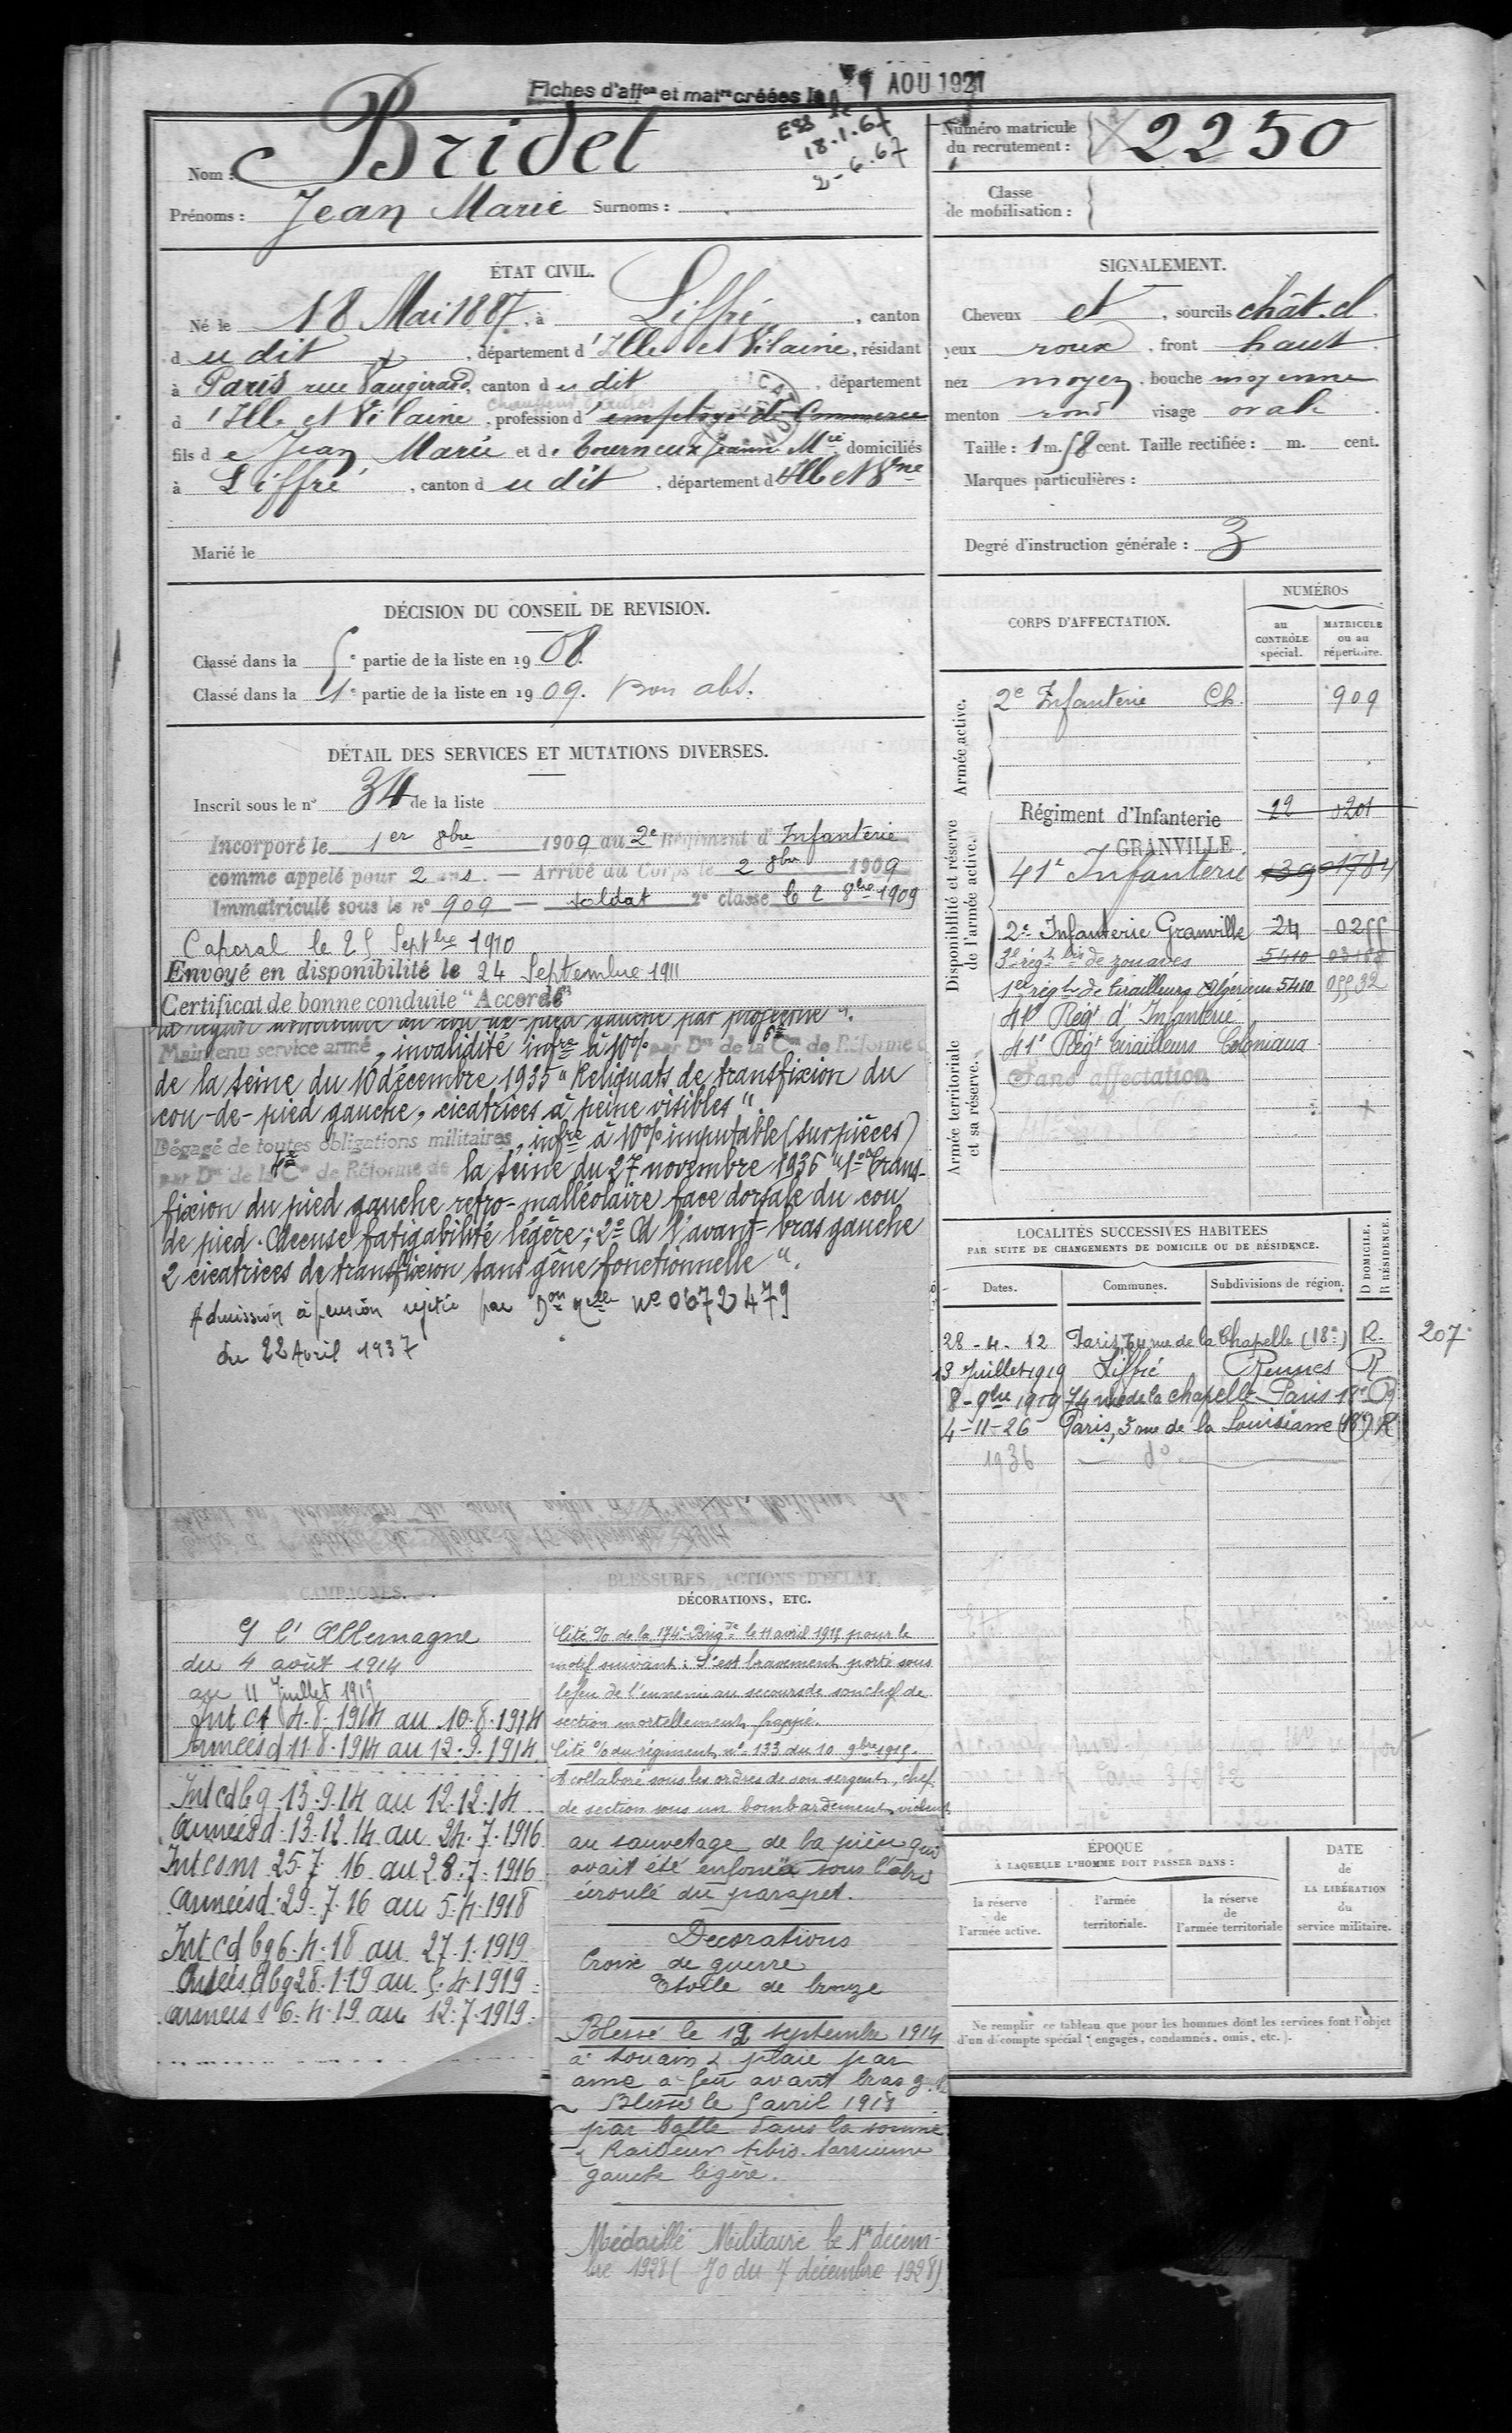 Fiches d'aff.on et mat.re créées le 9 AOU 1921
Nom : Bridet
18.1.67
2-6.67
Prénoms : Jean Marie Surnoms :
Numéro matricule du recrutement : 2250
Classe de mobilisation :
ÉTAT CIVIL.
Né le 18 Mai 1887, à Liffré, canton
d u dit, département d'Ille et Vilaine, résidant
à Paris rue Vaugirard, canton d u dit, département
d 'Ille et Vilaine, profession d'employé de Commerce
fils d e Jean Marie et de Tourneux Jeanne Mie domiciliés
à Liffré, canton d u dit, département d'Ille et Vne
Marié le
SIGNALEMENT.
Cheveux et, sourcils chât. cl.
yeux roux, front haut
nez moyen, bouche moyenne
menton rond visage ovale
Taille : 1 m. 58 cent. Taille rectifiée : m. cent.
Marques particulières :
Degré d'instruction générale : 3
DÉCISION DU CONSEIL DE REVISION.
Classé dans la 5e partie de la liste en 1908.
Classé dans la 1e partie de la liste en 1909. Bon abs.
DÉTAIL DES SERVICES ET MUTATIONS DIVERSES.
Inscrit sous le n° 34 de la liste
Incorporé le 1er 8bre 1909 au 2e Régiment d'Infanterie
comme appelé pour 2 ans. — Arrivé au Corps le 2 8bre 1909
Immatriculé sous le n° 909 — soldat 2e classe le 2 8bre 1909
Caporal le 25 Septbre 1910
Envoyé en disponibilité le 24 Septembre 1911
Certificat de bonne conduite "Accordé"
cou-de-pied gauche par projectile".
Maintenu service armé, invalidité infre à 10% par Don de la Con de Réforme
de la Seine du 10 décembre 1935 "Reliquats de transfixion du
cou-de-pied gauche, cicatrices à peine visibles".
Dégagé de toutes obligations militaires, infre à 10% imputable (sur pièces)
par Don de la Con de Réforme de la Seine du 27 novembre 1936 "1° Trans-
fixion du pied gauche retro-malléolaire face dorsale du cou
de pied. Accuse fatigabilité légère ; 2° A l'avant-bras gauche
2 cicatrices de transfixion sans gêne fonctionnelle".
Admission à pension rejetée par Don Mielle N° 0672479
du 22 Avril 1937
CORPS D'AFFECTATION.
NUMÉROS
au CONTRÔLE spécial.
MATRICULE ou au répertoire.
Armée active.
2e Infanterie Ch. 909
Disponibilité et réserve de l'armée active.
Régiment d'Infanterie 12 0201
GRANVILLE
41e Infanterie 139 01784
2e Infanterie Granville 24 0255
3e régt bis de zouaves 5410 03188
1er régt de tirailleurs Algériens 5410 05532
Armée territoriale et sa réserve.
41e Régt d'Infanterie
41e Régt Tirailleurs Coloniaux
Sans affectation
LOCALITÉS SUCCESSIVES HABITÉES
PAR SUITE DE CHANGEMENTS DE DOMICILE OU DE RÉSIDENCE.
Dates. Communes. Subdivisions de région. D DOMICILE. R RÉSIDENCE.
28-4-12 Paris, 74 rue de la Chapelle (18e) R. 207
13 Juillet 1919 Liffré Rennes R
8-9bre 1919 74 rue de la Chapelle Paris 18e
4-11-26 Paris, 5 rue de la Louisiane (18e) R
1936 — d° —
CAMPAGNES.
C/ l'Allemagne
du 4 août 1914
au 11 Juillet 1919
Int Ct 4.8.1914 au 10.8.1914
Armées d 11.8.1914 au 12.9.1914
Int cd bg 13.9.14 au 12.12.14
Armées d. 13.12.14 au 24.7.1916
Int csm 25.7.16 au 28.7.1916
Armées d. 29.7.16 au 5.4.1918
Int cd bg 6.4.18 au 27.1.1919
bg 28.1.19 au 5.4.1919
armées s 6.4.19 au 12.7.1919
BLESSURES, ACTIONS D'ÉCLAT,
DÉCORATIONS, ETC.
Cité % de la 174e Brigde le 11 avril 1915 pour le
motif suivant : S'est bravement porté sous
le feu de l'ennemi au secours de son chef de
section mortellement frappé.
Cité % du régiment n° 133 du 10 9bre 1915.
A collaboré sous les ordres de son sergent, chef
de section sous un bombardement violent
au sauvetage de la pièce qui
avait été enfouie sous l'abri
écroulé du parapet.
Decorations
Croix de guerre
Etoile de bronze
Blessé le 12 septembre 1914
à Souain plaie par
arme à feu avant bras g.
Blessé le 5 avril 1918
par balle dans la somme
Raideur tibio-tarsienne
gauche légère.
Médaillé Militaire le 1er décem-
bre 1928 (JO du 7 décembre 1928)
ÉPOQUE
À LAQUELLE L'HOMME DOIT PASSER DANS :
la réserve de l'armée active.
l'armée territoriale.
la réserve de l'armée territoriale
DATE de LA LIBÉRATION du service militaire.
Ne remplir ce tableau que pour les hommes dont les services font l'objet
d'un décompte spécial (engagés, condamnés, omis, etc.).